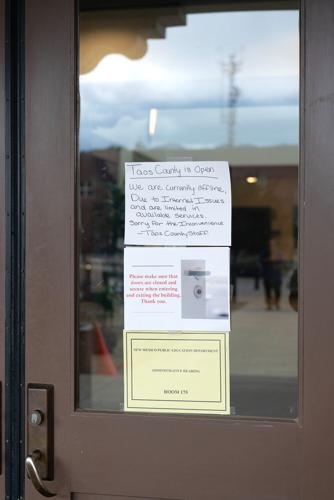 Taos County is Open
We are currently offline,
Due to Internet Issues
and are limited in
available services.
Sorry for the Inconvenience
-Taos County Staff
Please make sure that
doors are closed and
secure when entering
and exiting the building.
Thank you.
NEW MEXICO PUBLIC EDUCATION DEPARTMENT
ADMINISTRATIVE HEARING
ROOM 175